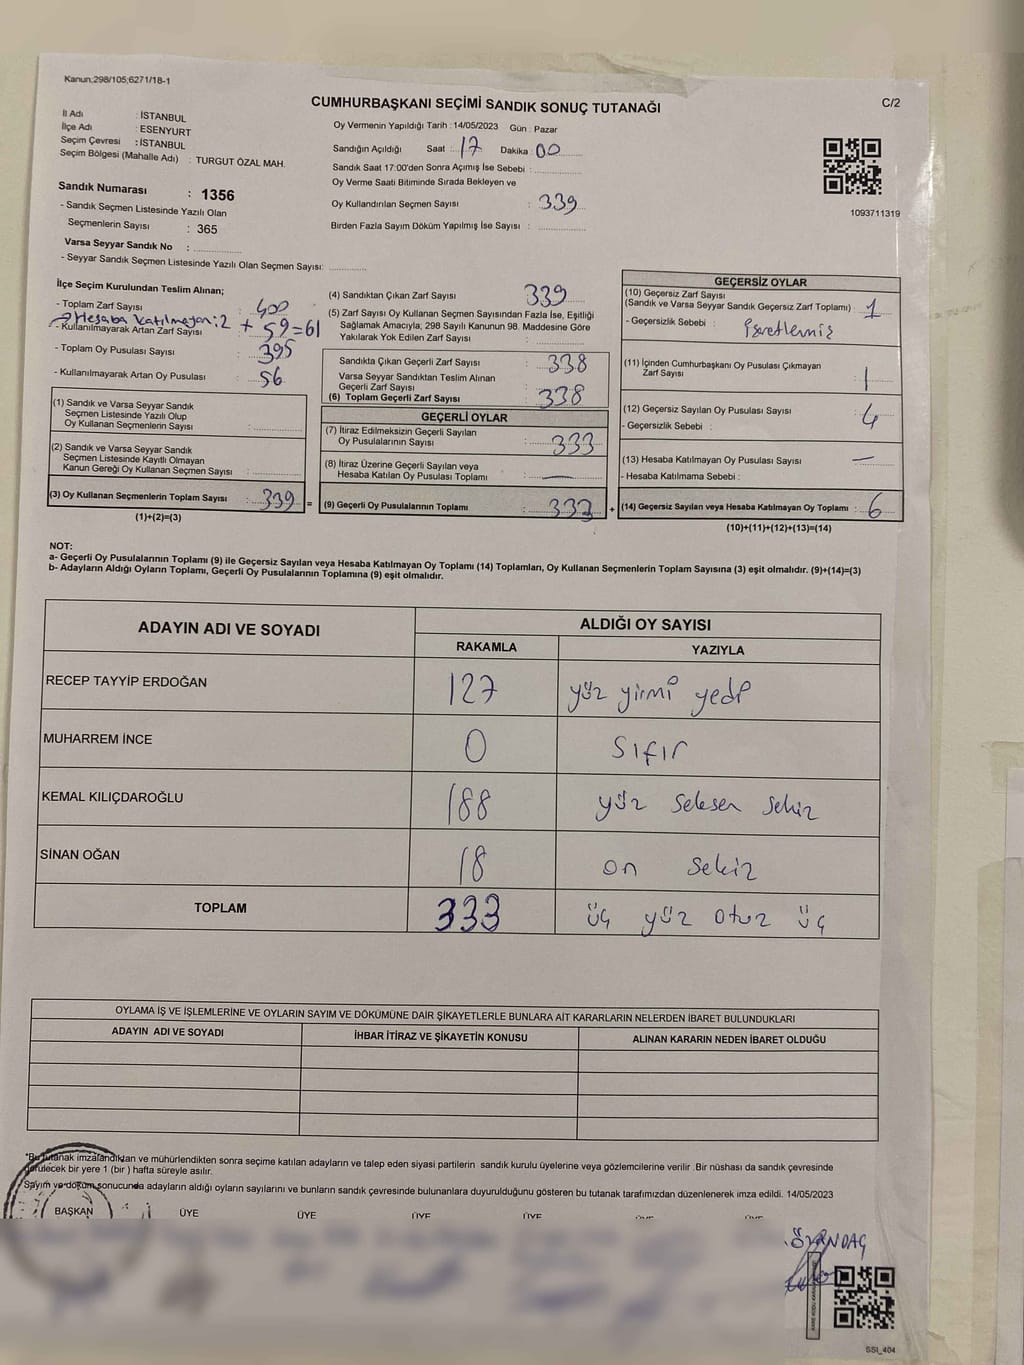 Kanun;298/105;6271/18-1
CUMHURBAŞKANI SEÇİMİ SANDIK SONUÇ TUTANAĞI
C/2
İl Adı : İSTANBUL
İlçe Adı : ESENYURT
Seçim Çevresi : İSTANBUL
Seçim Bölgesi (Mahalle Adı) : TURGUT ÖZAL MAH.
Sandık Numarası : 1356
- Sandık Seçmen Listesinde Yazılı Olan
Seçmenlerin Sayısı : 365
Varsa Seyyar Sandık No :
- Seyyar Sandık Seçmen Listesinde Yazılı Olan Seçmen Sayısı:
Oy Vermenin Yapıldığı Tarih : 14/05/2023 Gün : Pazar
Sandığın Açıldığı Saat : 17 Dakika : 00
Sandık Saat 17:00'den Sonra Açımış İse Sebebi :
Oy Verme Saati Bitiminde Sırada Bekleyen ve
Oy Kullandırılan Seçmen Sayısı : 339
Birden Fazla Sayım Döküm Yapılmış İse Sayısı :
1093711319
İlçe Seçim Kurulundan Teslim Alınan;
- Toplam Zarf Sayısı : 400
→ Hesaba Katılmayan: 2 + 59=61
- Kullanılmayarak Artan Zarf Sayısı
- Toplam Oy Pusulası Sayısı : 395
- Kullanılmayarak Artan Oy Pusulası : 56
(1) Sandık ve Varsa Seyyar Sandık
Seçmen Listesinde Yazılı Olup
Oy Kullanan Seçmenlerin Sayısı :
(2) Sandık ve Varsa Seyyar Sandık
Seçmen Listesinde Kayıtlı Olmayan
Kanun Gereği Oy Kullanan Seçmen Sayısı :
(3) Oy Kullanan Seçmenlerin Toplam Sayısı : 339 =
(1)+(2)=(3)
(4) Sandıktan Çıkan Zarf Sayısı : 339
(5) Zarf Sayısı Oy Kullanan Seçmen Sayısından Fazla İse, Eşitliği
Sağlamak Amacıyla; 298 Sayılı Kanunun 98. Maddesine Göre
Yakılarak Yok Edilen Zarf Sayısı :
Sandıkta Çıkan Geçerli Zarf Sayısı : 338
Varsa Seyyar Sandıktan Teslim Alınan
Geçerli Zarf Sayısı :
(6) Toplam Geçerli Zarf Sayısı : 338
GEÇERLİ OYLAR
(7) İtiraz Edilmeksizin Geçerli Sayılan
Oy Pusulalarının Sayısı : 333
(8) İtiraz Üzerine Geçerli Sayılan veya
Hesaba Katılan Oy Pusulası Toplamı : —
(9) Geçerli Oy Pusulalarının Toplamı : 333 +
GEÇERSİZ OYLAR
(10) Geçersiz Zarf Sayısı
(Sandık ve Varsa Seyyar Sandık Geçersiz Zarf Toplamı) : 1
- Geçersizlik Sebebi : İşaretlenmiş
(11) İçinden Cumhurbaşkanı Oy Pusulası Çıkmayan
Zarf Sayısı : 1
(12) Geçersiz Sayılan Oy Pusulası Sayısı : 4
- Geçersizlik Sebebi :
(13) Hesaba Katılmayan Oy Pusulası Sayısı : —
- Hesaba Katılmama Sebebi :
(14) Geçersiz Sayılan veya Hesaba Katılmayan Oy Toplamı : 6
(10)+(11)+(12)+(13)=(14)
NOT:
a- Geçerli Oy Pusulalarının Toplamı (9) ile Geçersiz Sayılan veya Hesaba Katılmayan Oy Toplamı (14) Toplamları, Oy Kullanan Seçmenlerin Toplam Sayısına (3) eşit olmalıdır. (9)+(14)=(3)
b- Adayların Aldığı Oyların Toplamı, Geçerli Oy Pusulalarının Toplamına (9) eşit olmalıdır.
ADAYIN ADI VE SOYADI
ALDIĞI OY SAYISI
RAKAMLA YAZIYLA
RECEP TAYYİP ERDOĞAN 127 yüz yirmi yedi
MUHARREM İNCE 0 sıfır
KEMAL KILIÇDAROĞLU 188 yüz seksen sekiz
SİNAN OĞAN 18 on sekiz
TOPLAM 333 üç yüz otuz üç
OYLAMA İŞ VE İŞLEMLERİNE VE OYLARIN SAYIM VE DÖKÜMÜNE DAİR ŞİKAYETLERLE BUNLARA AİT KARARLARIN NELERDEN İBARET BULUNDUKLARI
ADAYIN ADI VE SOYADI İHBAR İTİRAZ VE ŞİKAYETİN KONUSU ALINAN KARARIN NEDEN İBARET OLDUĞU
*Bu tutanak imzalandıktan ve mühürlendikten sonra seçime katılan adayların ve talep eden siyasi partilerin sandık kurulu üyelerine veya gözlemcilerine verilir .Bir nüshası da sandık çevresinde
görülecek bir yere 1 (bir ) hafta süreyle asılır.
Sayım ve döküm sonucunda adayların aldığı oyların sayılarını ve bunların sandık çevresinde bulunanlara duyurulduğunu gösteren bu tutanak tarafımızdan düzenlenerek imza edildi. 14/05/2023
BAŞKAN ÜYE ÜYE ÜYE ÜYE ÜYE ÜYE
SSI_404